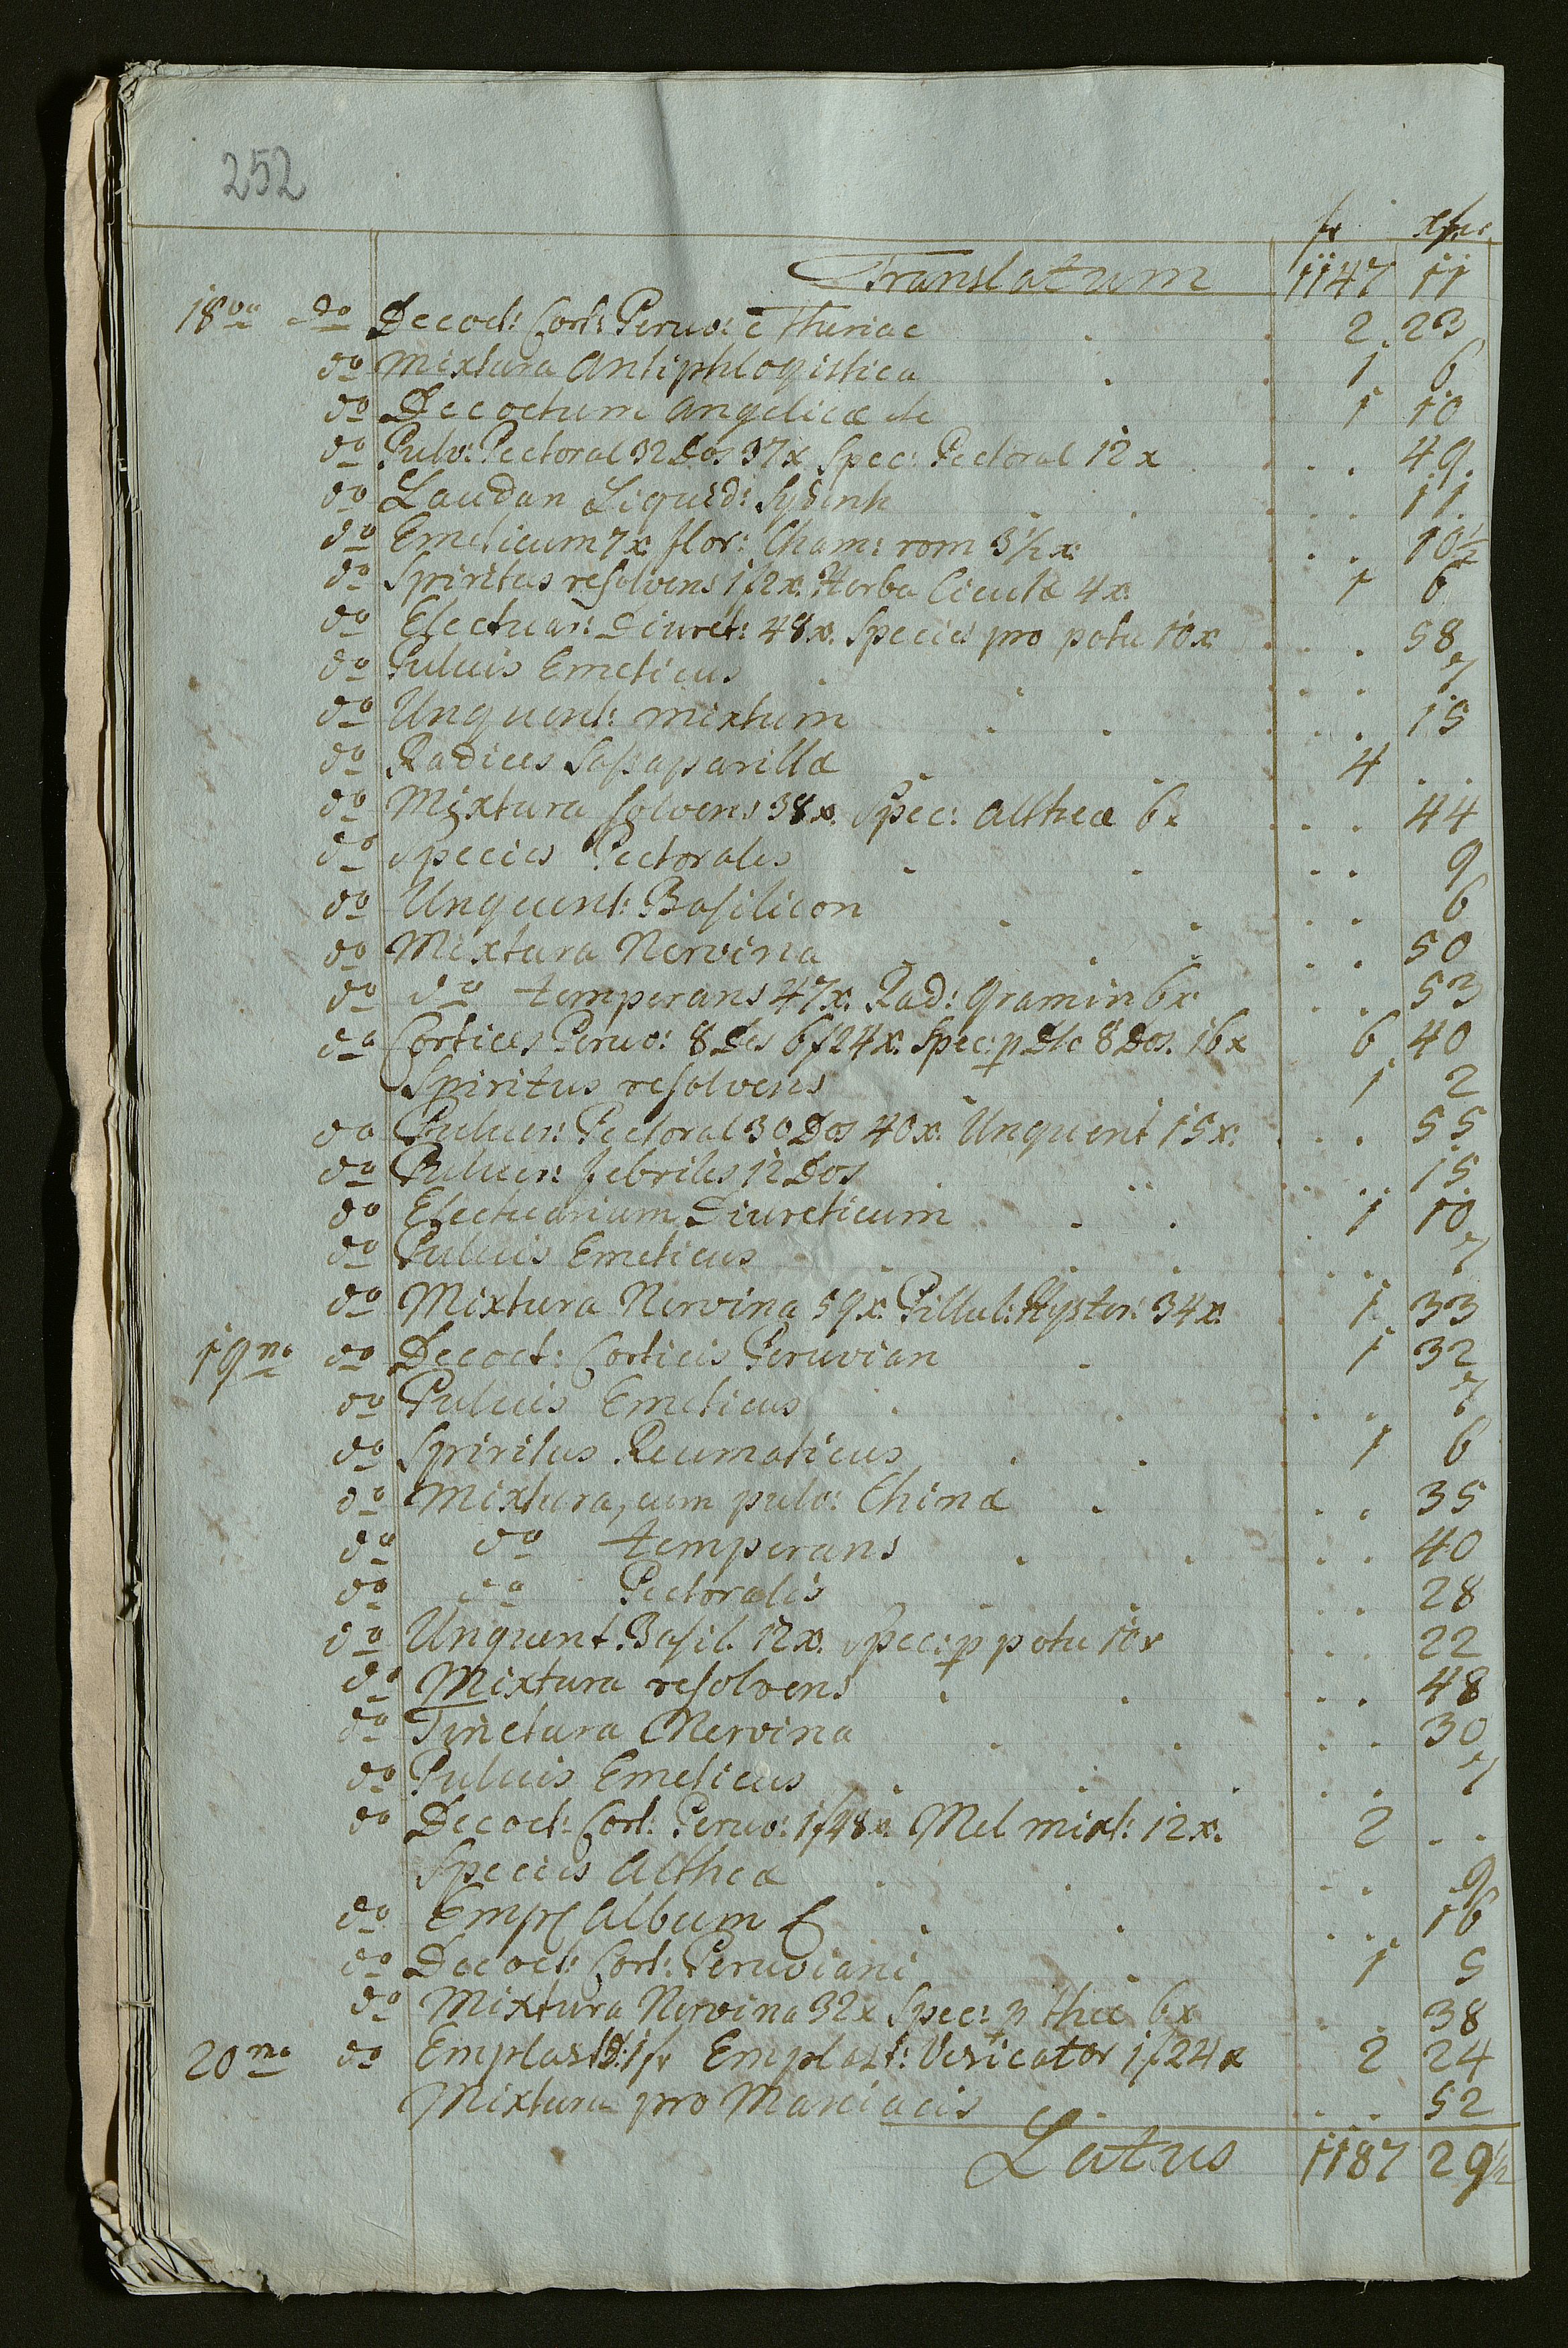 252
fr xfer
Translatum 1147 11
18va do Decoct: Cort: Peruv: c Theriac . 2 . 23
do Mixtura Antiphlogistica . . 1 6
do Decoctum Angelicæ etc 1 10
do Pulv: Pectoral 32 Dos 37x Spec: Pectoral 12x . . . 49.
do Laudan Liquid: Sydenh . . . . . 11.
do Emeticum 7x flor: Cham: rom 3½x: . . 10½
do Spiritus resolvens 1f2x. Herba Cicutæ 4x. 1 6
do Electuar: Diuret: 48x. Species pro potu 10x . . . 58
do Pulvis Emeticus . . . . . 7
do Unguent: mixtum . . . . . 15
do Radices Saßaparillæ . . 4 . .
do Mixtura solvens 38x. Spec: Altheæ 6x . . . 44
do Species Pectorales . . . . 9
do Unguent: Basilicon . . . . . 6
do Mixtura Nervina . . . . 50
do do temperans 47x. Rad: Gramin 6x . . 53
do Cortices Peruv: 8 Dos 6f24x. Spec: p Dto 8 Dos. 16x 6 40
Spiritus resolvens . 1 2
do Pulver: Pectoral 30 Dos 40x. Unguent 15x. . . . 55
do Pulver: febriles 12 Dos . . . . 15
do Electuarium Diureticum . . 1 10
do Pulvis Emeticus . . . . . 7
do Mixtura Nervina 59x. Pillul: Hyster: 34x. . 1 33
19na do Decoct: Corticis Peruvian . 1 32
do Pulvis Emeticus . . . . . 7
do Spiritus Reumaticus . . 1 6
do Mixtura, cum pulv: Chinæ . . . 35
do do temperans . . . . . 40
do do Pectoralis . . . . 28
do Unguent. Basil. 12x. Spec: p potu 10x . . . 22
do Mixtura resolvens . . . . . 48
do Tinctura Nervina . . . . 30
do Pulvis Emeticus . . . . . 7
do Decoct: Cort: Peruv: 1f48x. Mel mixt: 12x. 2 . .
Species Altheæ . . . . 9
do Empl Album . . . . . 16
do Decoct: Cort: Peruviani . 1 5
do Mixtura Nervina 32x Spec: p theæ 6x . . 38
20ma do Emplast: 1fr Emplast: Vesicator 1f24x . 2 24
Mixtura pro Maniacis . . . . 52
Latus 1187 29½